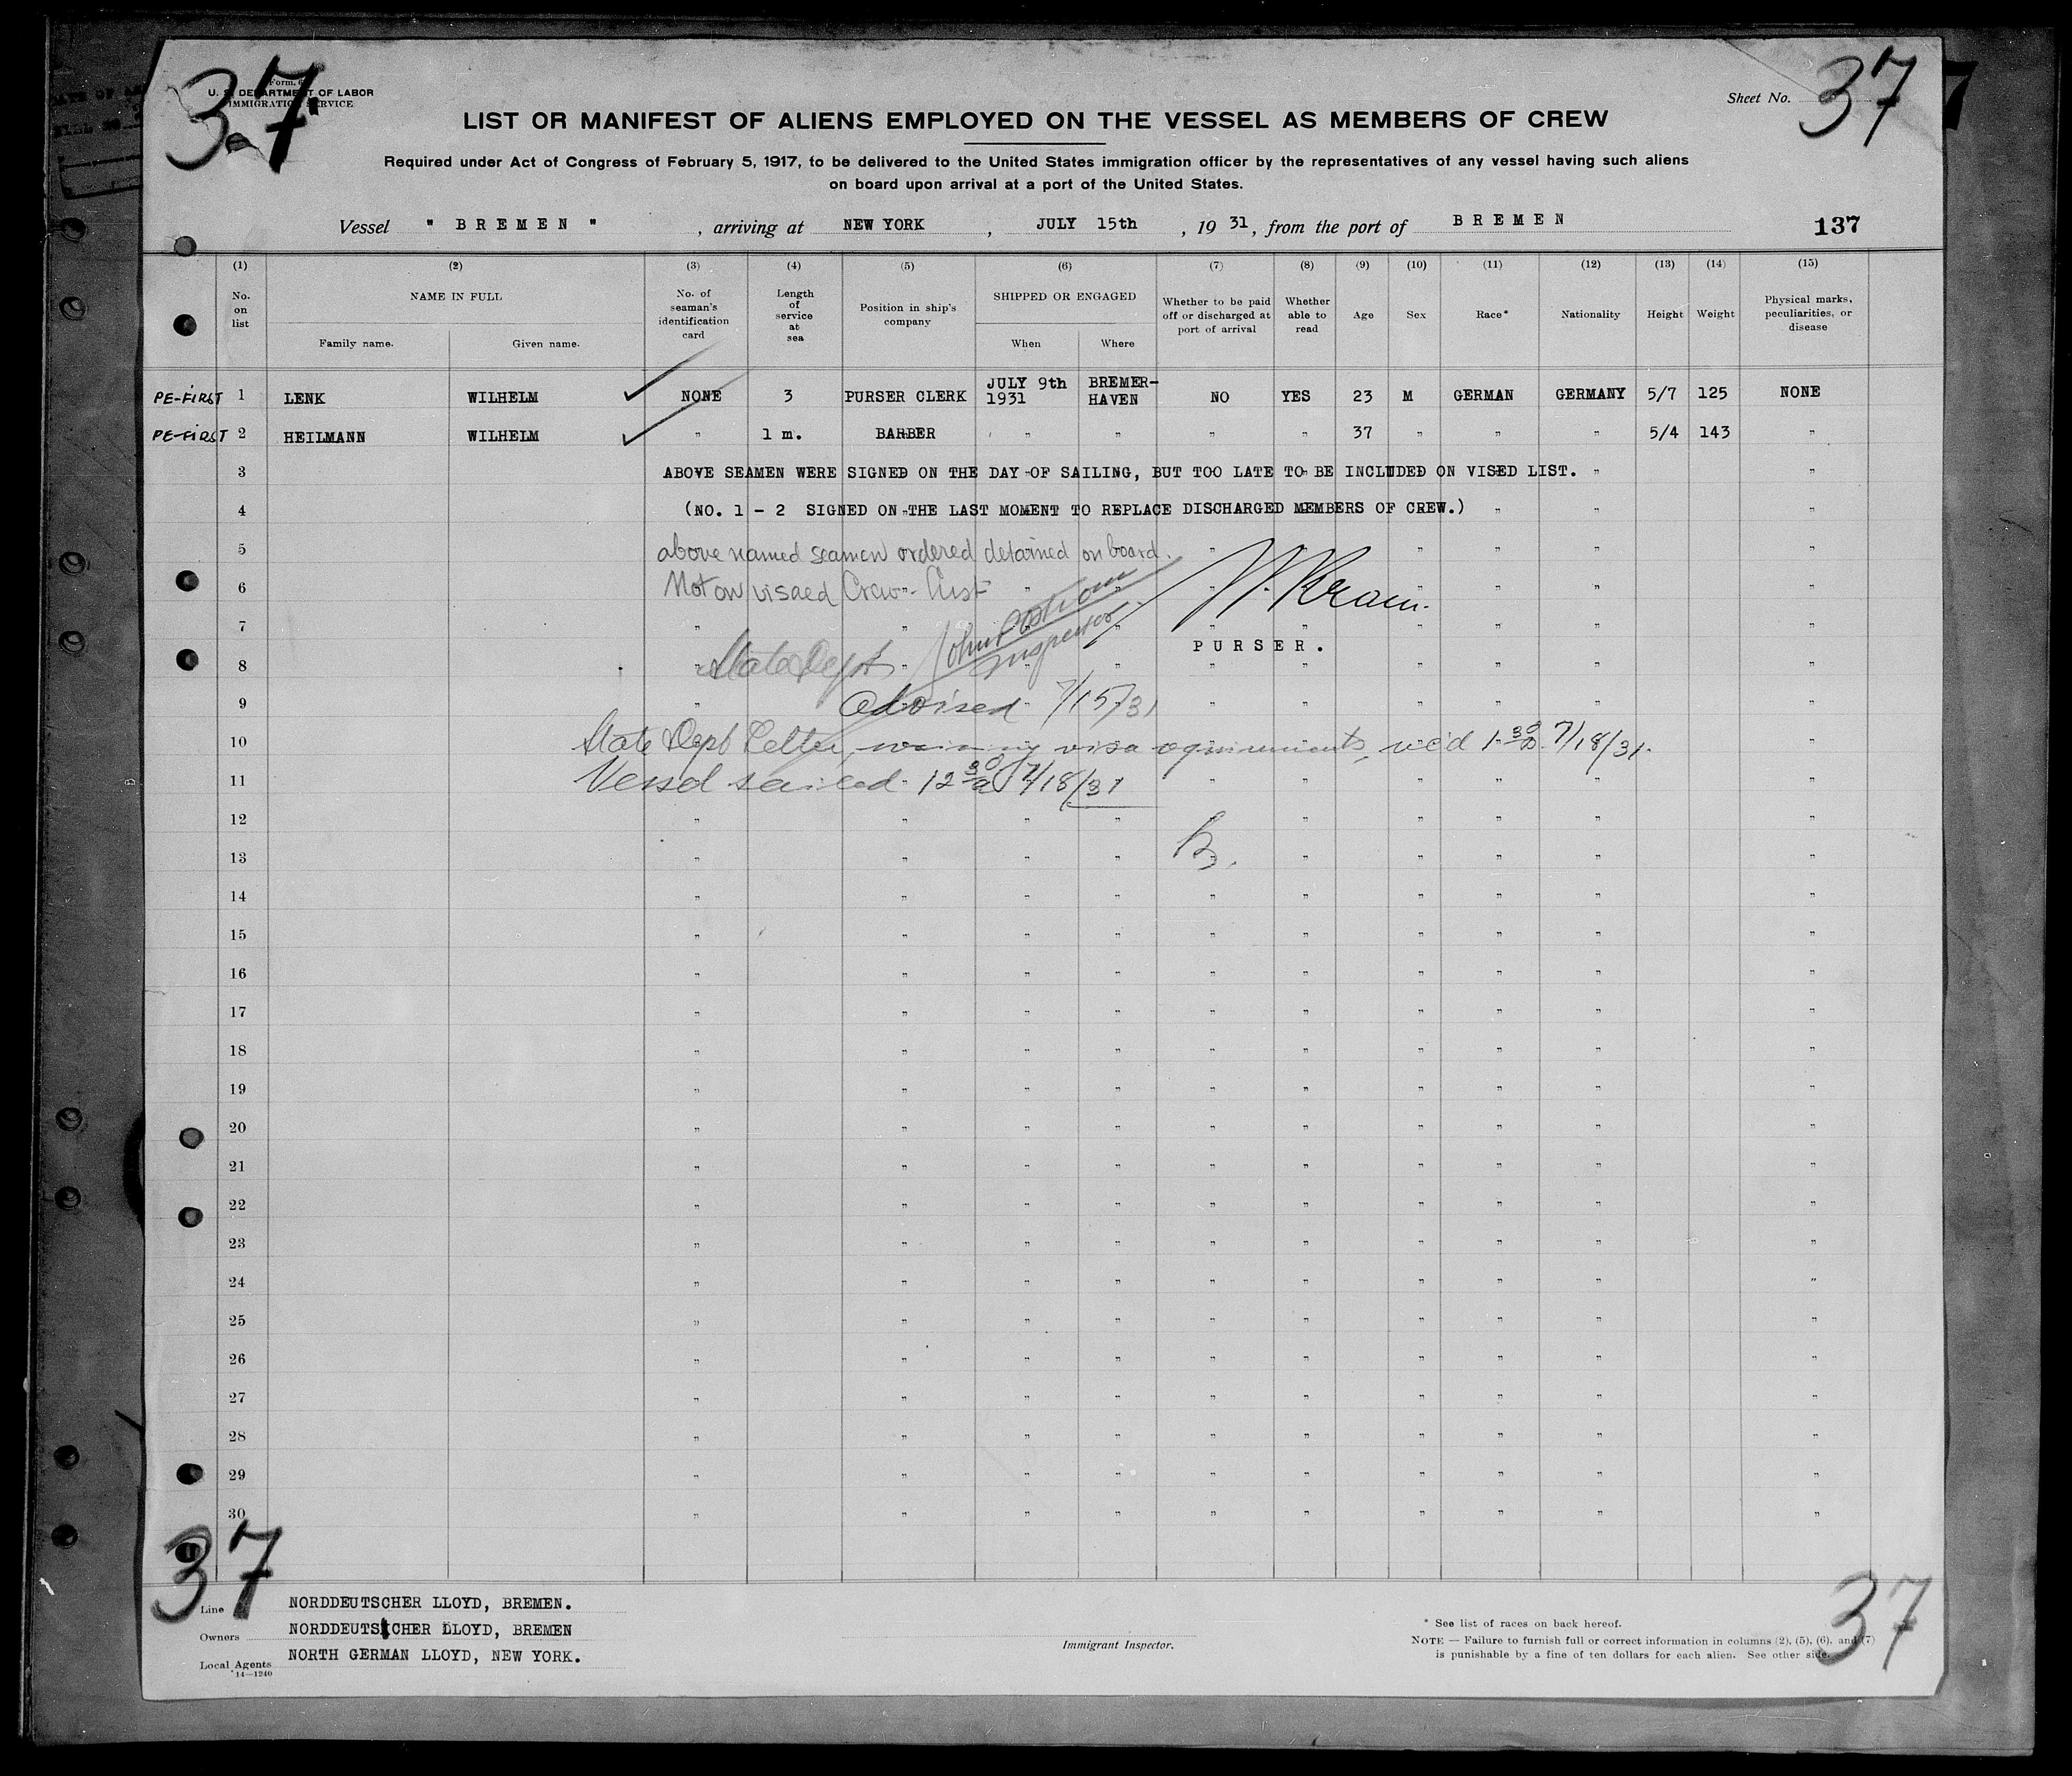 37 37 7
Form 6
U. S. DEPARTMENT OF LABOR
IMMIGRATION SERVICE
Sheet No.
LIST OR MANIFEST OF ALIENS EMPLOYED ON THE VESSEL AS MEMBERS OF CREW
Required under Act of Congress of February 5, 1917, to be delivered to the United States immigration officer by the representatives of any vessel having such aliens
on board upon arrival at a port of the United States.
Vessel " BREMEN " , arriving at NEW YORK , JULY 15th , 19 31, from the port of BREMEN 137
(1) (2) (3) (4) (5) (6) (7) (8) (9) (10) (11) (12) (13) (14) (15)
No. on list NAME IN FULL Family name. Given name. No. of seaman's identification card Length of service at sea Position in ship's company SHIPPED OR ENGAGED When Where Whether to be paid off or discharged at port of arrival Whether able to read Age Sex Race* Nationality Height Weight Physical marks, peculiarities, or disease
PE-FIRST 1 LENK WILHELM NONE 3 PURSER CLERK JULY 9th 1931 BREMER-HAVEN NO YES 23 M GERMAN GERMANY 5/7 125 NONE
PE-FIRST 2 HEILMANN WILHELM " 1 m. BARBER " " " " 37 " " " 5/4 143 "
3 ABOVE SEAMEN WERE SIGNED ON THE DAY OF SAILING, BUT TOO LATE TO BE INCLUDED ON VISED LIST. " "
4 (NO. 1 - 2 SIGNED ON THE LAST MOMENT TO REPLACE DISCHARGED MEMBERS OF CREW.) " " "
5 above named seamen ordered detained on board.
6 Not on visaed Crew List
7
PURSER.
8 State Dept John Inspector
9 advised 7/15/31
10 State Dept Letter, waiving visa requirements, rec'd 1 30 p. 7/18/31.
11 Vessel sailed 12 30 a 7/18/31
12
13
14
15
16
17
18
19
20
21
22
23
24
25
26
27
28
29
30
37 37
Line NORDDEUTSCHER LLOYD, BREMEN.
Owners NORDDEUTSCHER LLOYD, BREMEN
Local Agents NORTH GERMAN LLOYD, NEW YORK.
14—1240
Immigrant Inspector.
* See list of races on back hereof.
NOTE — Failure to furnish full or correct information in columns (2), (5), (6), and (7)
is punishable by a fine of ten dollars for each alien. See other side.